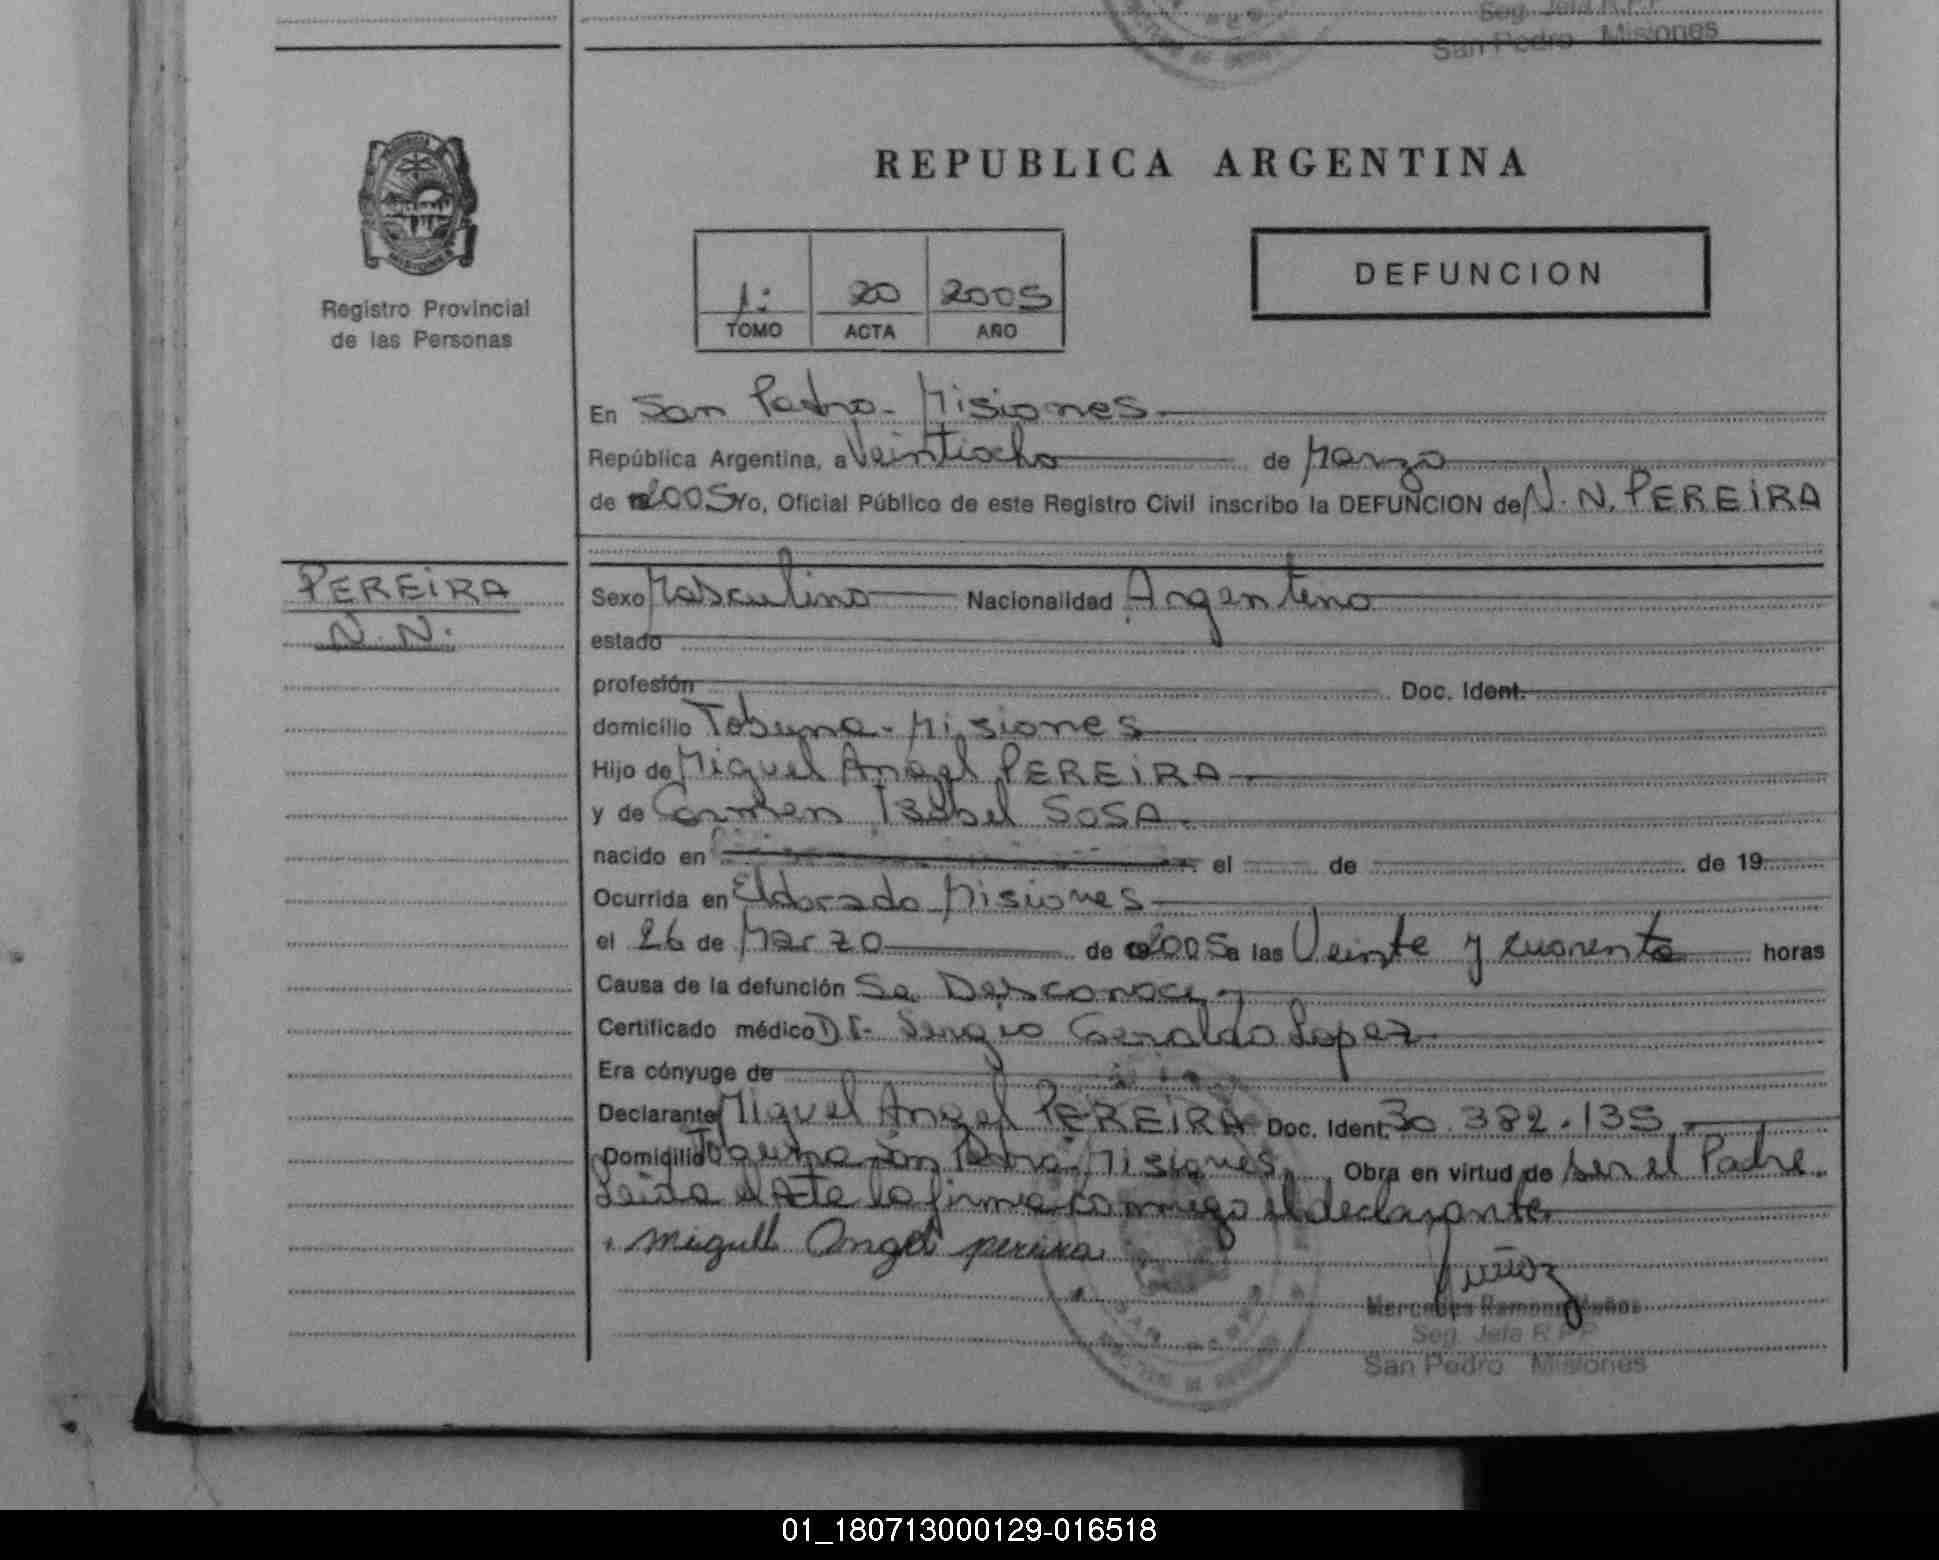 Seg. Jefa R.P.P
San Pedro Misiones
REPUBLICA ARGENTINA
DEFUNCION
1: 20 2005
TOMO ACTA AÑO
Registro Provincial
de las Personas
En San Pedro - Misiones
República Argentina, a Veintiocho de Marzo
de 2005 Yo, Oficial Público de este Registro Civil inscribo la DEFUNCION de N.N. PEREIRA
PEREIRA
N.N.
Sexo Masculino Nacionalidad Argentino
estado
profesión Doc. Ident.
domicilio Tobuna - Misiones
Hijo de Miguel Angel PEREIRA
y de Carmen Isabel SOSA
nacido en el de de 19
Ocurrida en Eldorado Misiones
el 26 de Marzo de 2005 a las Veinte y cuarenta horas
Causa de la defunción Se Desconoce
Certificado médico Dr. Sergio Geraldo Lopez
Era cónyuge de
Declarante Miguel Angel PEREIRA Doc. Ident. 30.382.135
Domicilio San Pedro Misiones Obra en virtud de ser el Padre
Leida el Acta la firma conmigo el declarante
Miguel Angel pereira
Muñoz
Mercedes Ramona Muñoz
Seg. Jefa R.P.P
San Pedro Misiones
01_180713000129-016518